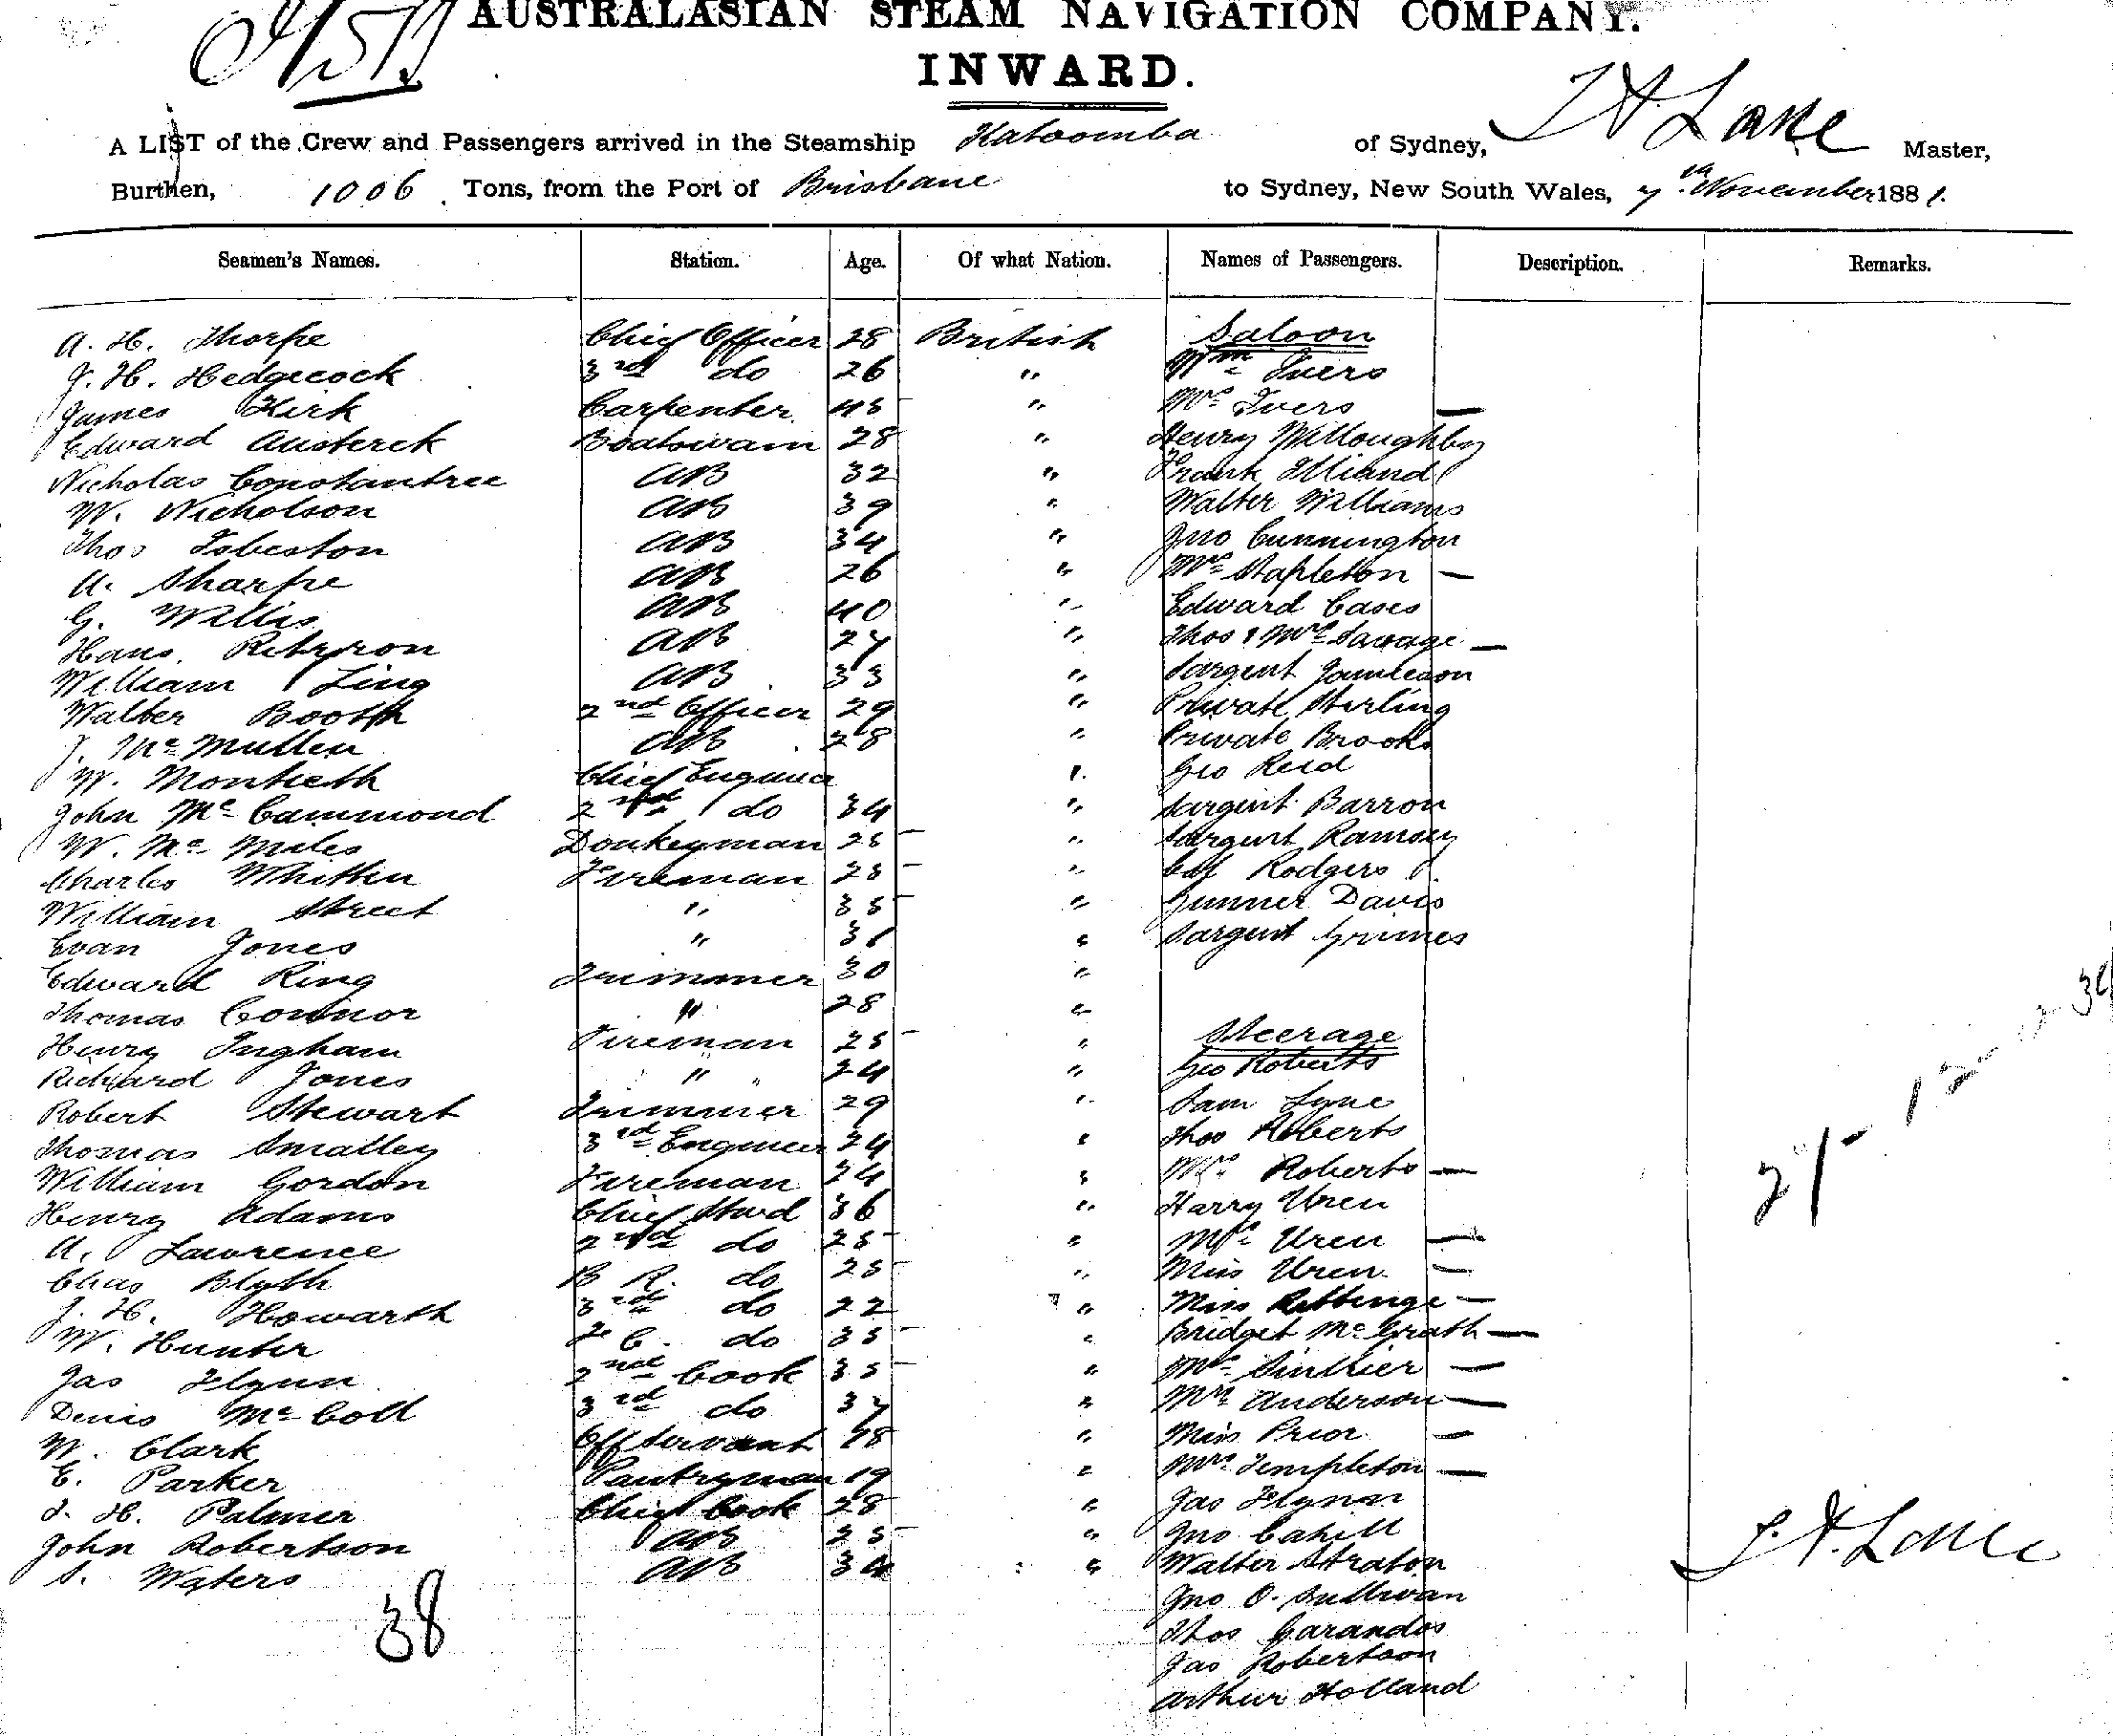 AUSTRALASIAN STEAM NAVIGATION COMPANY.
INWARD.
A LIST of the Crew and Passengers arrived in the Steamship Katoomba of Sydney, T A Lake Master,
Burthen, 1006 Tons, from the Port of Brisbane to Sydney, New South Wales, 7th November 1881.
Seamen's Names. Station. Age. Of what Nation. Names of Passengers. Description. Remarks.
A. H. Thorpe Chief Officer 28 British Saloon
J. H. Hedgecock 3rd do 26 " Wm Ivers
James Kirk Carpenter 45 " Mrs Ivers —
Edward Austerck Boatswain 28 " Henry Willoughby
Nicholas Constantree AB 32 " Frank
W. Nicholson AB 39 " Walter Williams
Thos Isbeston AB 34 " Jno Cunnington
A. Sharpe AB 26 " Mrs Stapleton —
G. Willis AB 40 " Edward Cases
Hans AB 27 " Thos & Mrs Savage —
William Ling AB 33 " Sargent Jamieson
Walter Booth 2nd Officer 29 " Private Sterling
J. McMullen AB 28 " Private Brooks
W. Montieth Chief Engineer " Geo Reid
John McCammond 2nd do 34 " Sargent Barron
W. McMiles Donkeyman 25 " Sargent Ramsey
Charles Whittin Fireman 25 " Rodgers
William Street " 35 " Gunner Davis
Evan Jones " 31 " Sargent Grimes
Edward Ring Trimmer 30 "
Thomas Connor " 28 "
Henry Ingham Fireman 25 " Steerage
Richard Jones " 24 " Geo Roberts
Robert Stewart Trimmer 29 " Sam Lyne
Thomas Smalley 3rd Engineer 24 " Thos Roberts
William Gordon Fireman 24 " Mrs Roberts —
Henry Adams Chief Stwd 36 " Harry Uren
A. Lawrence 2nd do 25 " Mrs Uren —
Chas Blyth B R. do 25 " Miss Uren —
J. H. Howarth 3rd do 22 " Miss —
W. Hunter F C. do 35 " Bridget McGrath —
Jas Flynn 2nd Cook 35 " Mrs —
Denis McColl 3rd do 37 " Mrs Anderson —
W. Clark Off Servant 18 " Miss Prior —
E. Parker Pantryman 19 " Mrs Templeton —
J. H. Palmer Chief Cook 28 " Jas Flynn
John Robertson AB 25 " Jno Cahill
S. Waters AB 34 " Walter Straton
Jno O. Sullivan
38 Thos Carandos
Jas Robertson
Arthur Holland
T. A. Lake